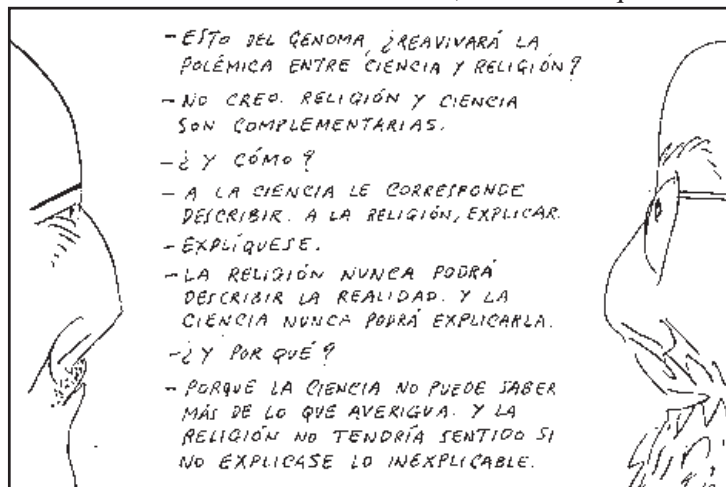 - ESTO DEL GENOMA, ¿REAVIVARÁ LA
POLÉMICA ENTRE CIENCIA Y RELIGIÓN?
- NO CREO. RELIGIÓN Y CIENCIA
SON COMPLEMENTARIAS.
- ¿Y CÓMO?
- A LA CIENCIA LE CORRESPONDE
DESCRIBIR. A LA RELIGIÓN, EXPLICAR.
- EXPLÍQUESE.
- LA RELIGIÓN NUNCA PODRÁ
DESCRIBIR LA REALIDAD. Y LA
CIENCIA NUNCA PODRÁ EXPLICARLA.
- ¿Y POR QUÉ?
- PORQUE LA CIENCIA NO PUEDE SABER
MÁS DE LO QUE AVERIGUA. Y LA
RELIGIÓN NO TENDRÍA SENTIDO SI
NO EXPLICASE LO INEXPLICABLE.